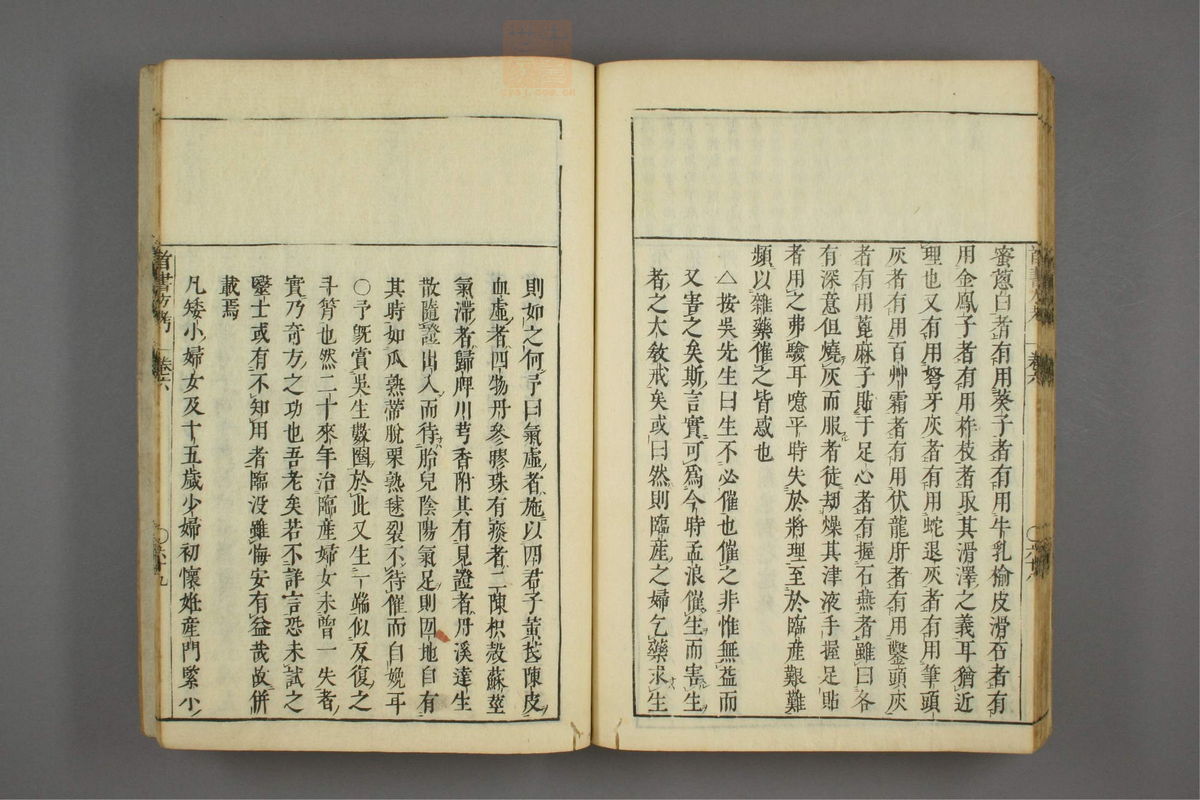 蜜蔥白者有用葵子者有用牛乳榆皮滑石者有
用金鳳子者有用柞枝者取其滑澤之義耳猶近
理也又有用弩牙灰者有用蛇退灰者有用筆頭
灰者有用百艸霜者有用伏龍肝者有用鑿頭灰
者有用蓖麻子貼于足心者有握石燕者雖曰各
有深意但燒灰而服者徒劫燥其津液手握足貼
者用之弗驗耳噫平時失於將理至於臨產艱難
頻以雜藥催之皆惑也
△按吳先生曰生不必催也催之非惟無益而
又害之矣斯言實可爲今時孟浪催生而害生
者之大敎戒矣或曰然則臨產之婦乞藥求生
則如之何予曰氣虛者施以四君子黃芪陳皮
血虛者四物丹參膠珠有痰者二陳枳殼蘇莖
氣滯者歸脾川芎香附其有見證者丹溪達生
散隨證出入而待胎兒陰陽氣足則因地自有
其時如瓜熟蒂脫栗熟毬裂不待催而自娩耳
○予旣賞吳生數圈於此又生一端似反復之
斗筲也然二十來年治臨產婦女未曾一失者
實乃奇方之功也吾老矣若不詳言恐未試之
醫士或有不知用者臨没雖悔安有益哉故併
載焉
凡矮小婦女及十五歲少婦初懷姙產門緊小
首書方考
卷六
○六十九